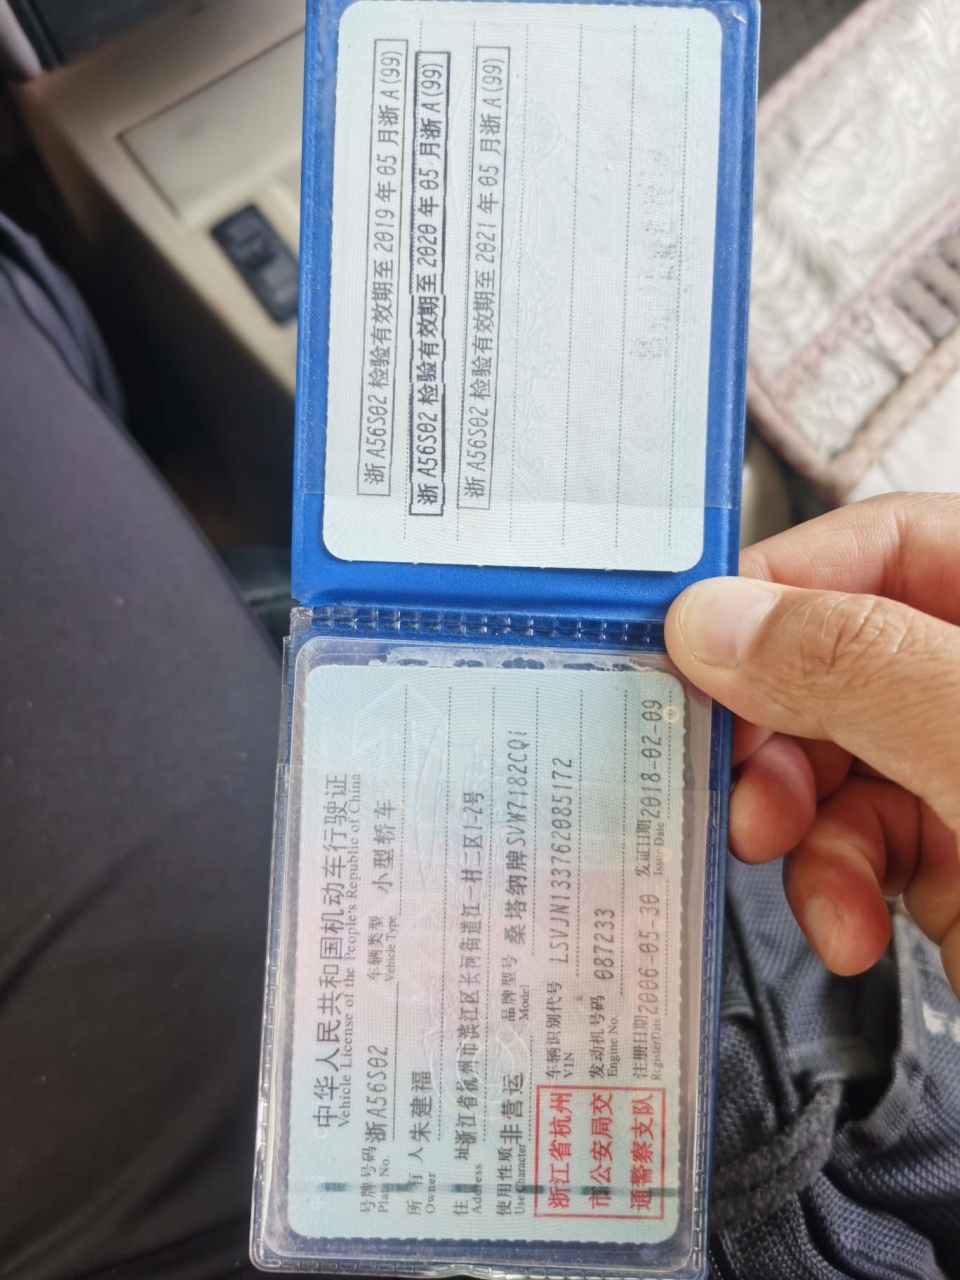 浙A56S02 检验有效期至2019年05月浙A(99)
浙A56S02 检验有效期至2020年05月浙A(99)
浙A56S02 检验有效期至2021年05月浙A(99)
中华人民共和国机动车行驶证
Vehicle License of the People's Republic of China
号牌号码 浙A56S02 车辆类型 小型轿车
Plate No. Vehicle Type
所有人 朱建福
Owner
住址 浙江省杭州市滨江区长河街道江一村二区1-2号
Address
使用性质 非营运 品牌型号 桑塔纳牌SVW7182CQ1
Use Character Model
车辆识别代号 LSVJN133762085172
VIN
发动机号码 087233
Engine No.
注册日期 2006-05-30 发证日期 2018-02-09
Register Date Issue Date
浙江省杭州
市公安局交
通警察支队